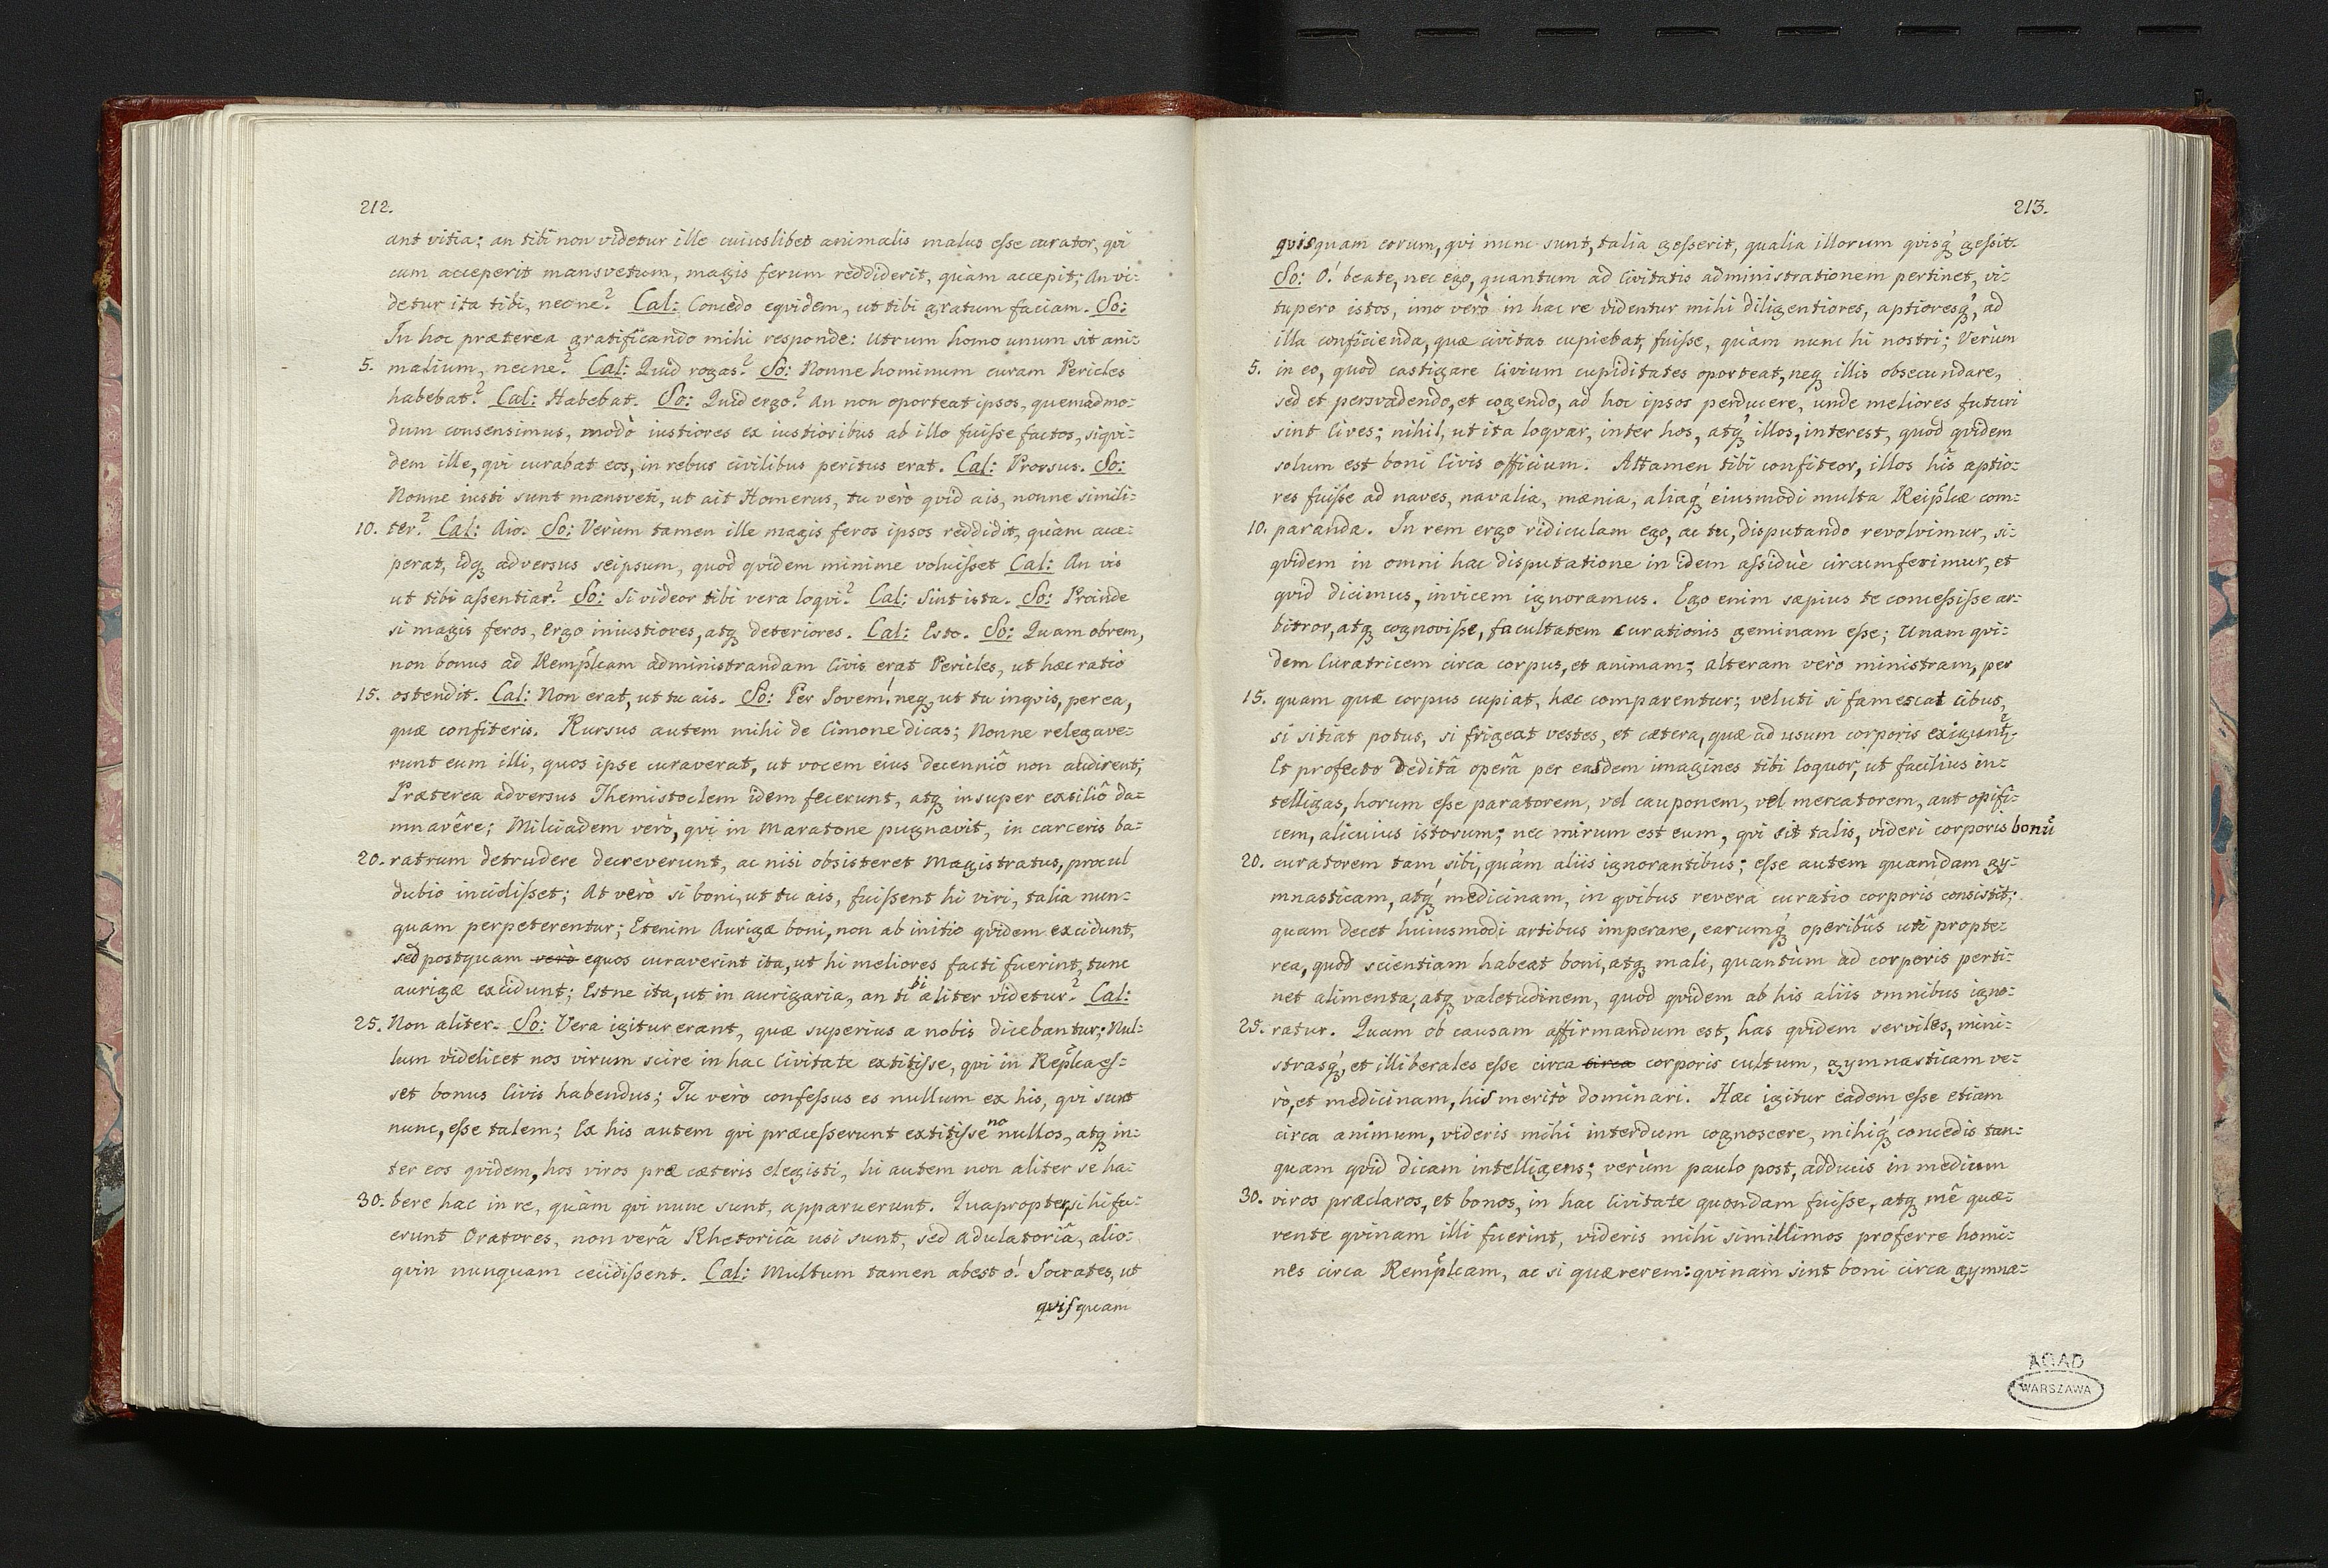 212.
ant vitia; an tibi non videtur ille cuiuslibet animalis malus eſse curator, qvi
cum acceperit mansvetum, magis ferum reddiderit, quàm accepit; An vi-
detur ita tibi, necne? Cal: Concedo eqvidem, ut tibi gratum faciam. So:
In hoc præterea gratificando mihi responde: utrum homo unum sit ani-
5. malium, necne? Cal: Quid rogas? So: Nonne hominum curam Pericles
habebat? Cal: Habebat. So: Quid ergo? An non oporteat ipsos, quemadmo-
dum consensimus, modò iustiores ex iustioribus ab illo fuiſse factos, siqvi-
dem ille, qvi curabat eos, in rebus civilibus peritus erat. Cal: Prorsus. So:
Nonne iusti sunt mansveti, ut ait Homerus, tu verò qvid ais, nonne simili-
10. ter? Cal: Aio. So: Verùm tamen ille magis feros ipsos reddidit, quàm acce-
perat, idq adversus seipsum, quod qvidem minime voluiſset Cal: An vis
ut tibi aſsentiar? So: Si videor tibi vera loqvi? Cal: Sint ista. So: Proinde
si magis feros, Ergo iniustiores, atq deteriores. Cal: Esto. So: Quam obrem,
non bonus ad Rempľcam administrandam Civis erat Pericles, ut hæc ratio
15. ostendit. Cal: Non erat, ut tu ais. So: Per Iovem! neq ut tu inqvis, per ea,
quæ confiteris. Rursus autem mihi de Cimone dicas; Nonne relegave-
runt eum illi, quos ipse curaverat, ut vocem eius decenniô non audirent;
Præterea adversus Themistoclem idem fecerunt, atq insuper exiliô da-
mnavêre; Milciadem verò, qvi in Maratone pugnavit, in carceris ba-
20. ratrum detrudere decreverunt, ac nisi obsisteret Magistratus, procul
dubio incidiſset; At verò si boni, ut tu ais, fuiſsent hi viri, talia nun-
quam perpeterentur; Etenim Aurigæ boni, non ab initio qvidem excidunt,
sed postquam vero equos curaverint ita, ut hi meliores facti fuerint, tunc
aurigæ excidunt; Estne ita, ut in aurigaria, an tibi aliter videtur? Cal:
25. Non aliter. So: Vera igitur erant, quæ superius a nobis dicebantur; Nul-
lum videlicet nos virum scire in hac Civitate extitiſse, qvi in Repľca eſ-
set bonus Civis habendus; Tu verò confeſsus es nullum ex his, qvi sunt
nunc, eſse talem; Ex his autem qvi præceſserunt extitiſse nonullos, atq in-
ter eos qvidem, hos viros præ cæteris elegisti, hi autem non aliter se ha-
30. bere hac in re, quàm qvi nunc sunt, apparuerunt. Quapropter, si hi fu-
erunt Oratores, non verâ Rhetoricâ usi sunt, sed adulatoriâ, alio-
qvin nunquam cecidiſsent. Cal: Multum tamen abest ò! Socrates, ut
qviſquam
213.
qvisquam eorum, qvi nunc sunt, talia geſserit, qualia illorum qvisq geſsit.
So: O! beate, nec ego, quantum ad Civitatis administrationem pertinet, vi-
tupero istos, imo verò in hac re videntur mihi diligentiores, aptioresq, ad
illa conficienda, quæ civitas cupiebat, fuiſse, quàm nunc hi nostri; Verùm
5. in eo, quod castigare Civium cupiditates oporteat, neq illis obsecundare,
sed et persvadendo, et cogendo, ad hoc ipsos perducere, unde meliores futuri
sint Cives; nihil, ut ita loqvar, inter hos, atq illos, interest, quod qvidem
solum est boni Civis officium. Attamen tibi confiteor, illos hîs aptio-
res fuiſse ad naves, navalia, mænia, aliaq eiusmodi multa Reipľcæ com-
10. paranda. In rem ergo ridiculam ego, ac tu, disputando revolvimur, si-
qvidem in omni hac disputatione in idem aſsiduè circumferimur, et
qvid dicimus, invicem ignoramus. Ego enim sæpius te conceſsiſse ar-
bitror, atq cognoviſse, facultatem curationis geminam eſse; Unam qvi-
dem Curatricem circa corpus, et animam; alteram verò ministram, per
15. quam quæ corpus cupiat, hæc comparentur; veluti si famescat cibus,
si sitiat potus, si frigeat vestes, et cætera, quæ ad usum corporis exigunt?
Et profecto Deditâ operâ per easdem imagines tibi loquor, ut facilius in-
telligas, horum eſse paratorem, vel cauponem, vel mercatorem, aut opifi-
cem, alicuius istorum; nec mirum est eum, qvi sit talis, videri corporis bonū
20. curatorem tam sibi, quàm aliis ignorantibus; eſse autem quamdam gy-
mnasticam, atq medicinam, in qvibus revera curatio corporis consistit;
quam decet huiusmodi artibus imperare, earumq operibus uti propte-
rea, quod scientiam habeat boni, atq mali, quantùm ad corporis perti-
net alimenta, atq valetudinem, quod qvidem ab his aliis omnibus igno-
25. ratur. Quam ob causam affirmandum est, has qvidem serviles, mini-
strasq, et illiberales eſse circa circa corporis cultum, gymnasticam ve-
rò, et medicinam, his meritò dominari. Hæc igitur eadem eſse etiam
circa animum, videris mihi interdum cognoscere, mihiq concedis tan-
quam qvid dicam intelligens; verùm paulo post, adducis in medium
30. viros præclaros, et bonos, in hac Civitate quondam fuiſse, atq mê quæ-
rente qvinam illi fuerint, videris mihi simillimos proferre homi-
nes circa Rempľcam, ac si quærerem: qvinam sint boni circa gymna-
AGAD
WARSZAWA